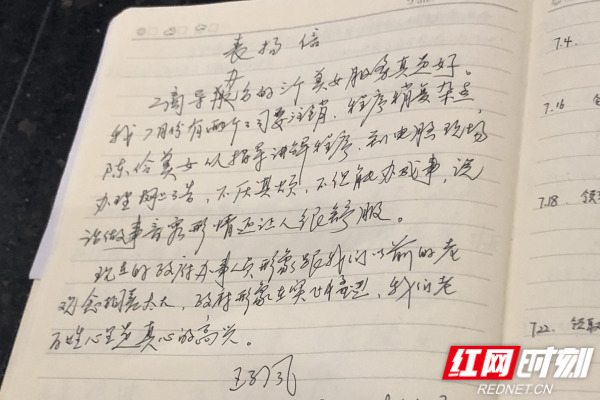 表扬信
工商导办服务的汴美女服务真是好。
我7月份有两个公司要注销,程序稍复杂点
陈 美女以指导讲解程序,到电脑现场
办理网上 ,不厌其烦,不但能办成事,说
话做事音容形情还让人很舒服。
现在的政府办事人员形象跟我们以前的老
观念相差太大,政府形象在实 ,我们老
百姓心里是真心的高兴。
7.4.
7.16
7.18. 领
7.22. 领取
红网时刻
REDNET.CN